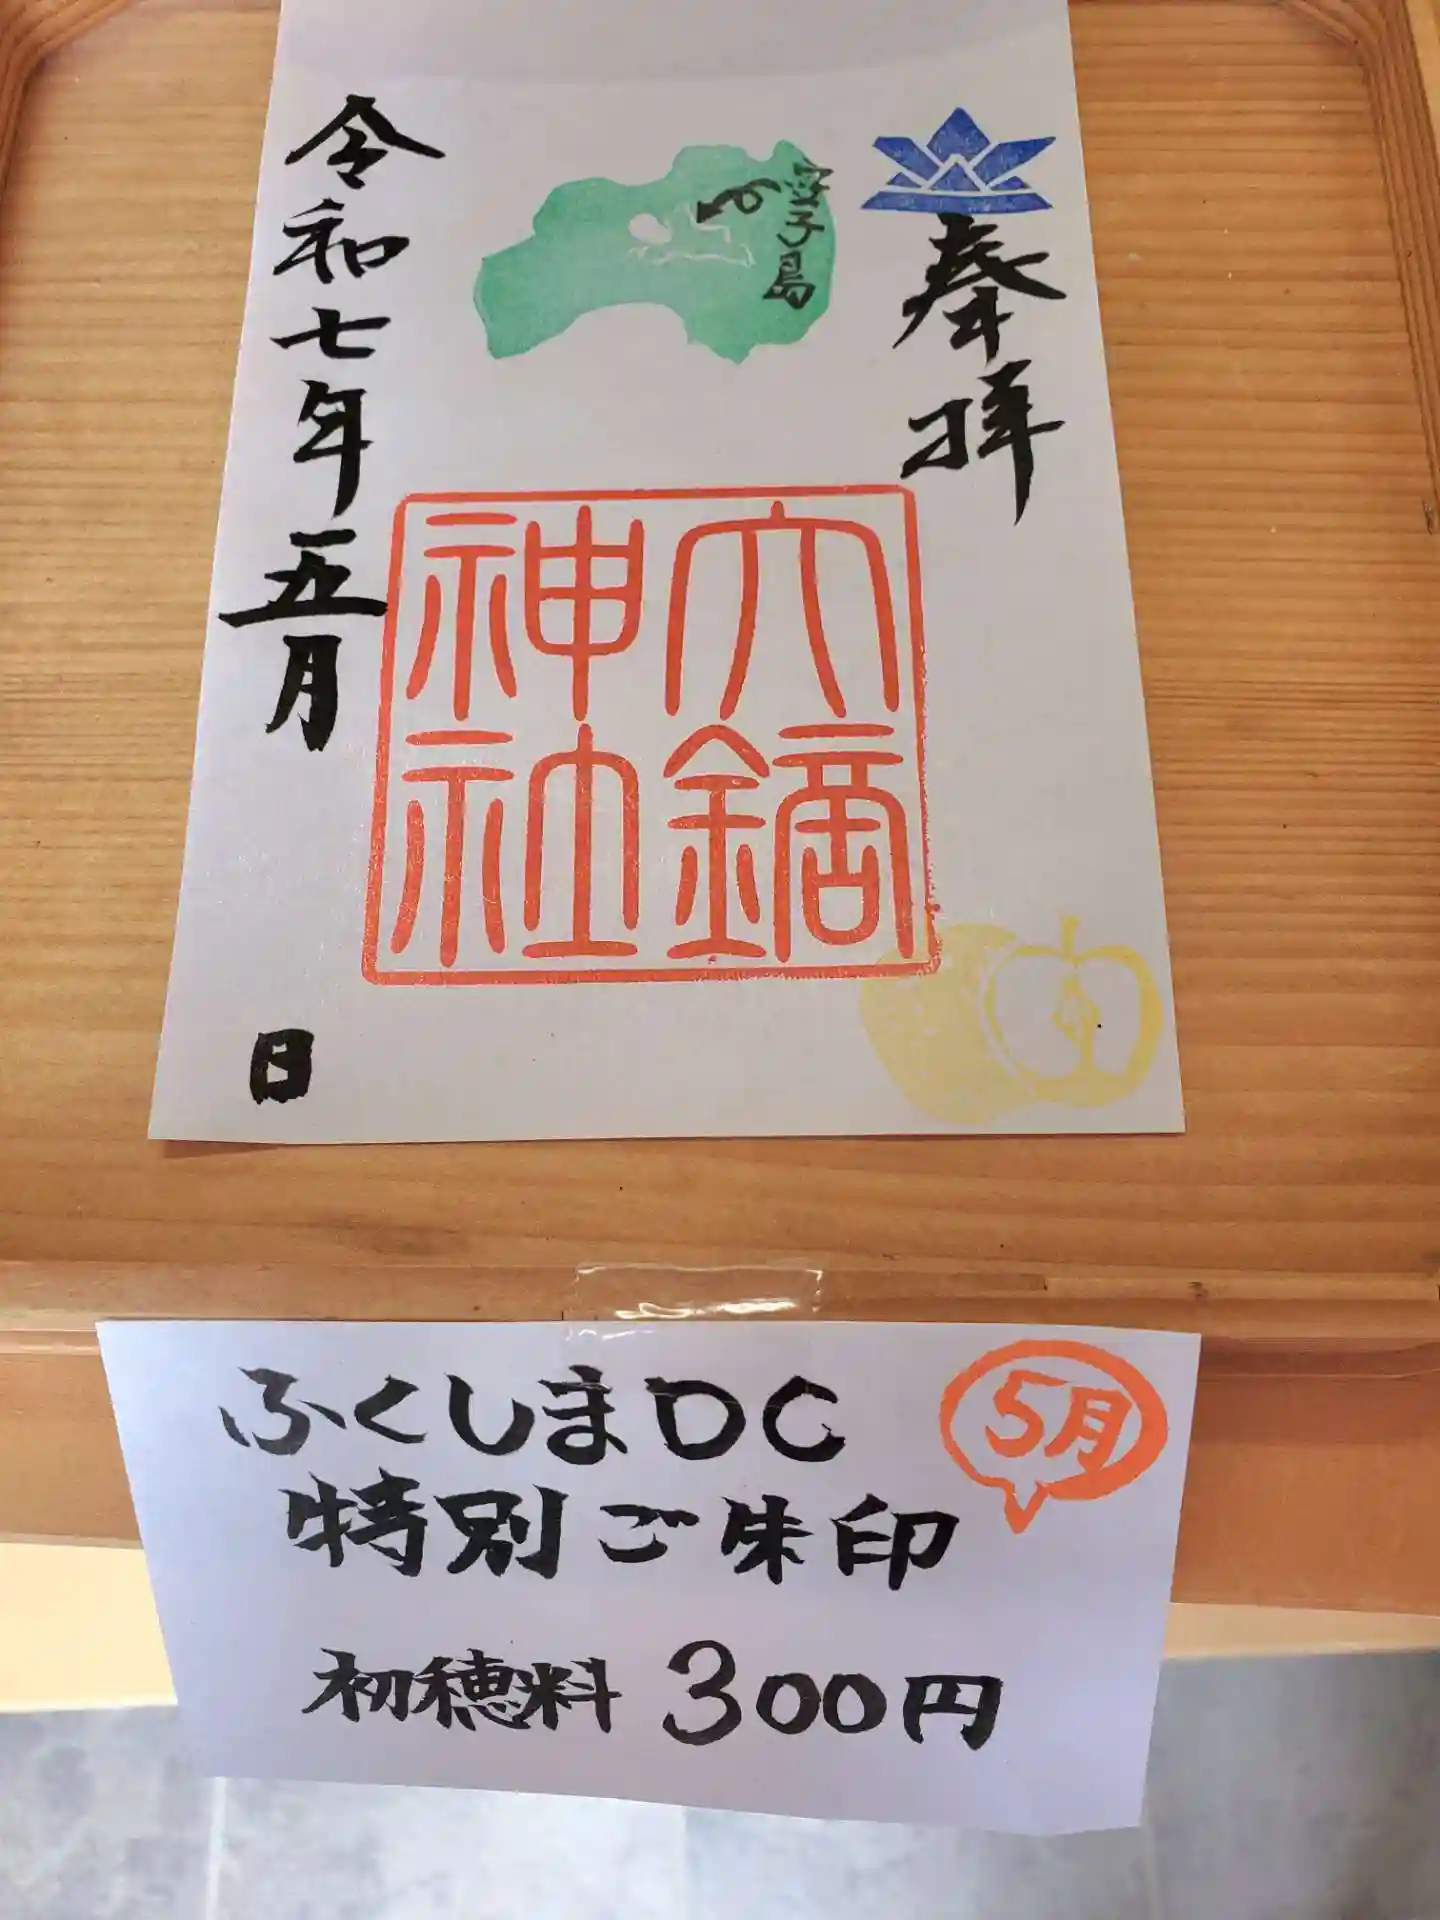 奉拝
安子島
大鏑
神社
令和七年五月 日
ふくしまDC
5月
特別ご朱印
初穂料 300円